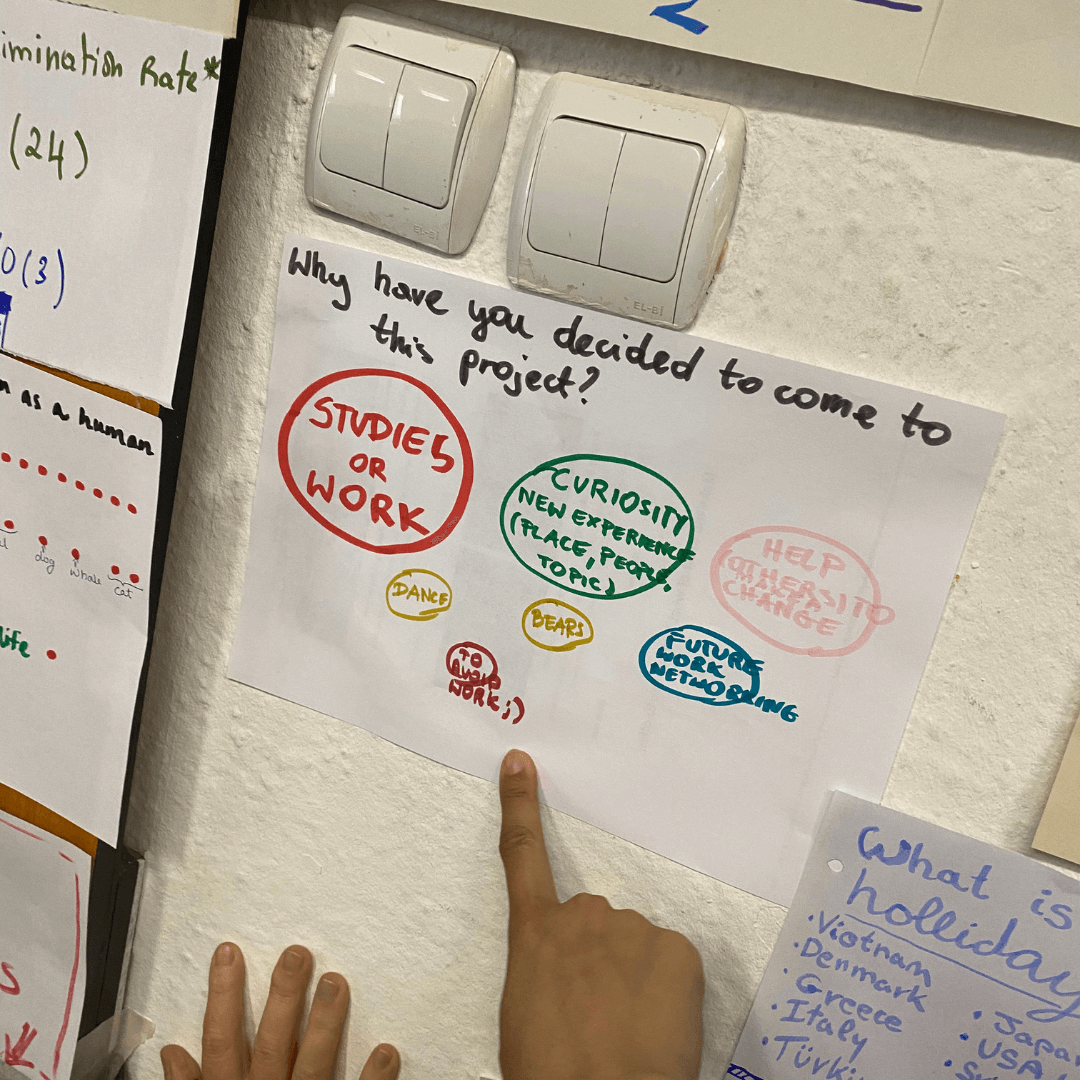 Rate*
(24)
(3)
as a human
dog
whale
cat
life
EL-Bi
EL-Bi
Why have you decided to come to
this project?
STUDIES
OR
WORK
CURIOSITY
NEW EXPERIENCE
(PLACE, PEOPLE,
TOPIC)
HELP
CHANGE
DANCE
BEARS
TO
AVOID
WORK ;)
FUTURE
WORK
NETWORKING
What is
holliday
• Viotnam
• Denmark
• Greece
• Italy
• USA
2